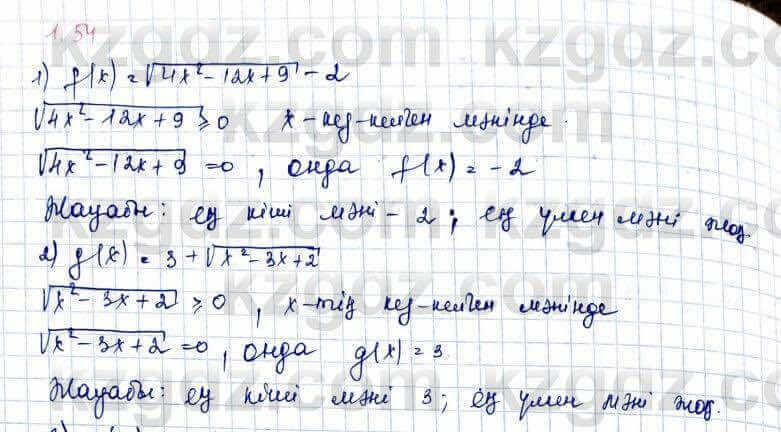 1.54
1) f(x) = √4x² - 12x + 9 - 2
√4x² - 12x + 9 ≥ 0 x - кез-келген мәнінде.
√4x² - 12x + 9 = 0, онда f(x) = -2
Жауабы: ең кіші мәні - 2; ең үлкен мәні жоқ.
2) g(x) = 3 + √x² - 3x + 2
√x² - 3x + 2 ≥ 0, x-тің кез-келген мәнінде
√x² - 3x + 2 = 0, онда g(x) = 3.
Жауабы: ең кіші мәні 3; ең үлкен мәні жоқ.
kzgdz.com